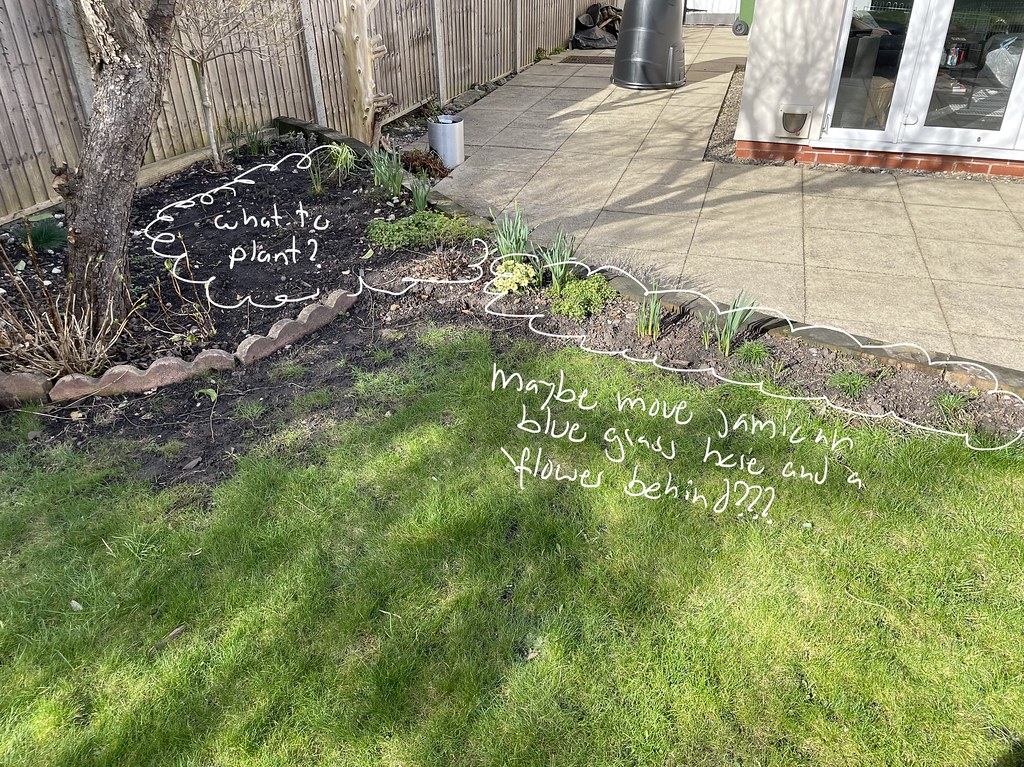 what to
plant?
Maybe move Jamican
blue grass here and a
flower behind???